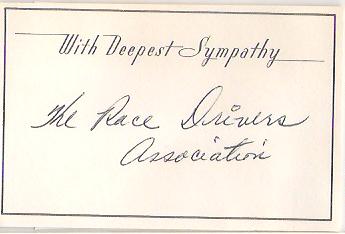 With Deepest Sympathy
The Race Drivers
Association